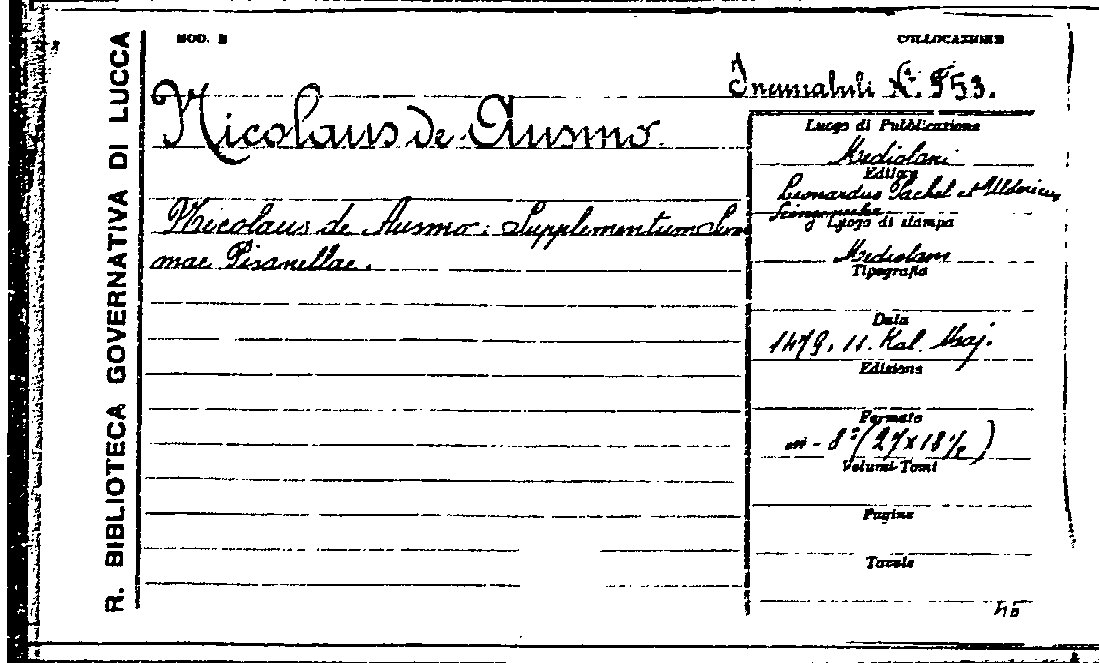 R. BIBLIOTECA GOVERNATIVA DI LUCCA
MOD. B
COLLOCAZIONE
Incunabuli N.º 553.
Nicolaus de Ausmo.
Nicolaus de Ausmo: Supplementum Sum
mae Pisanellae.
Luogo di Pubblicazione
Mediolani
Editore
Leonardus Pachel et Uldericus
Luogo di stampa
Mediolani
Tipografia
Data
1479, 11. Kal. Maj.
Edizione
Formato
in-8º (27 x 18 ½)
Volumi-Tomi
Pagine
Tavole